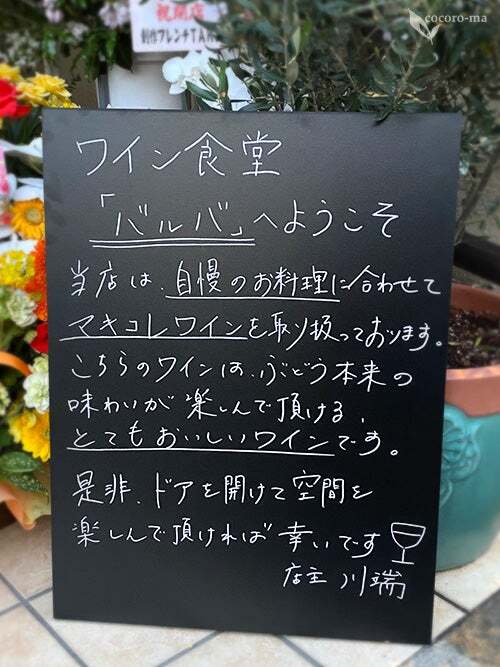 cocoro-ma
祝開店
創作フレンチTAK
ワイン食堂
「バルバ」へようこそ
当店は、自慢のお料理に合わせて
マキコレワインを取り扱っております。
こちらのワインは、ぶどう本来の
味わいが楽しんで頂ける、
とてもおいしいワインです。
是非、ドアを開けて空間を
楽しんで頂ければ幸いです
店主 川端